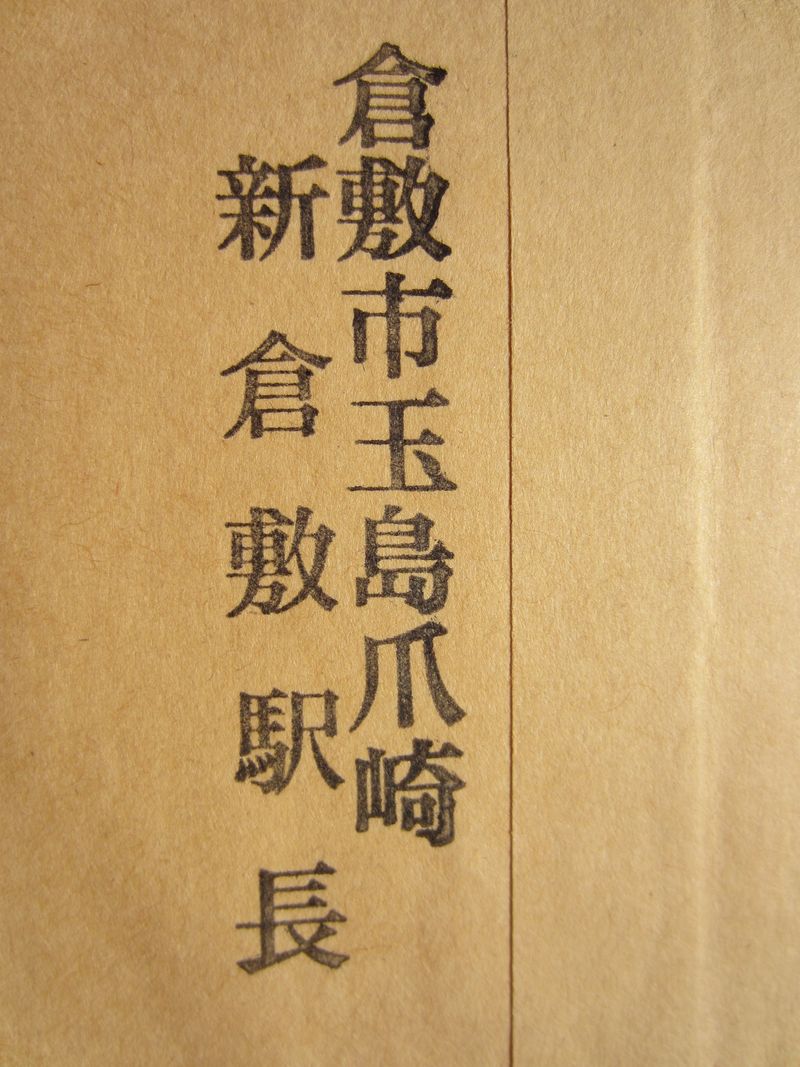 倉敷市玉島爪崎
新倉敷駅長